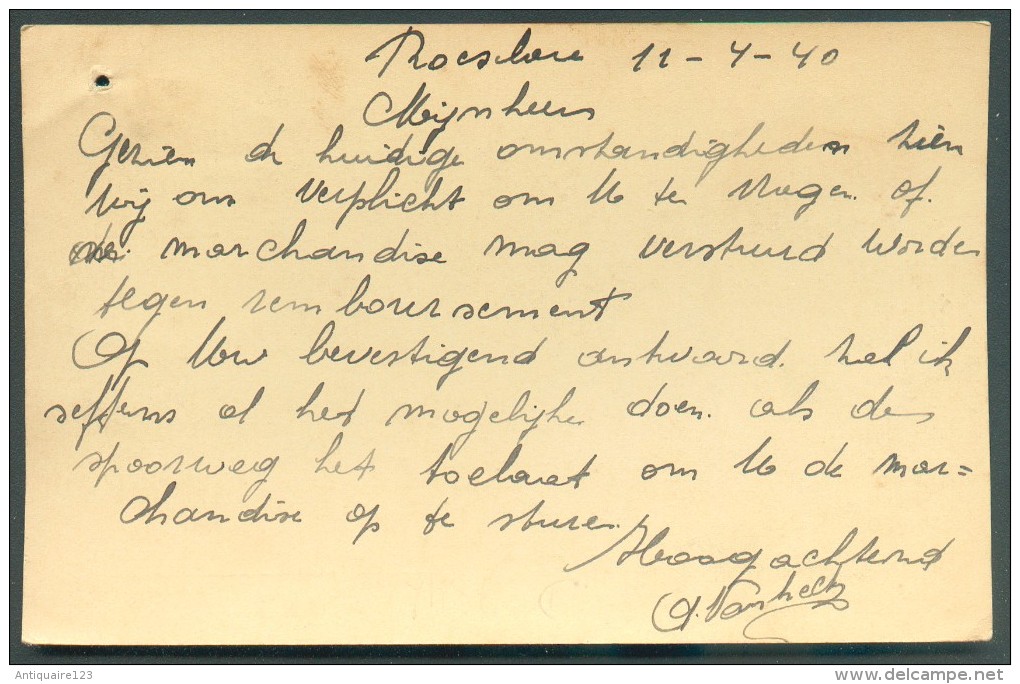 Roeselare 11-4-40
Mijnheer
Gezien de huidige omstandigheden zien
wij ons verplicht om U te vragen. of.
de marchandise mag verstuurd worden
tegen remboursement
Op Uw bevestigend antwoord. zal ik
seffens al het mogelijke doen. als den
spoorweg het toelaat om U de mar=
chandise op te sturen.
Hoogachtend
Antiquaire123
delcampe.net